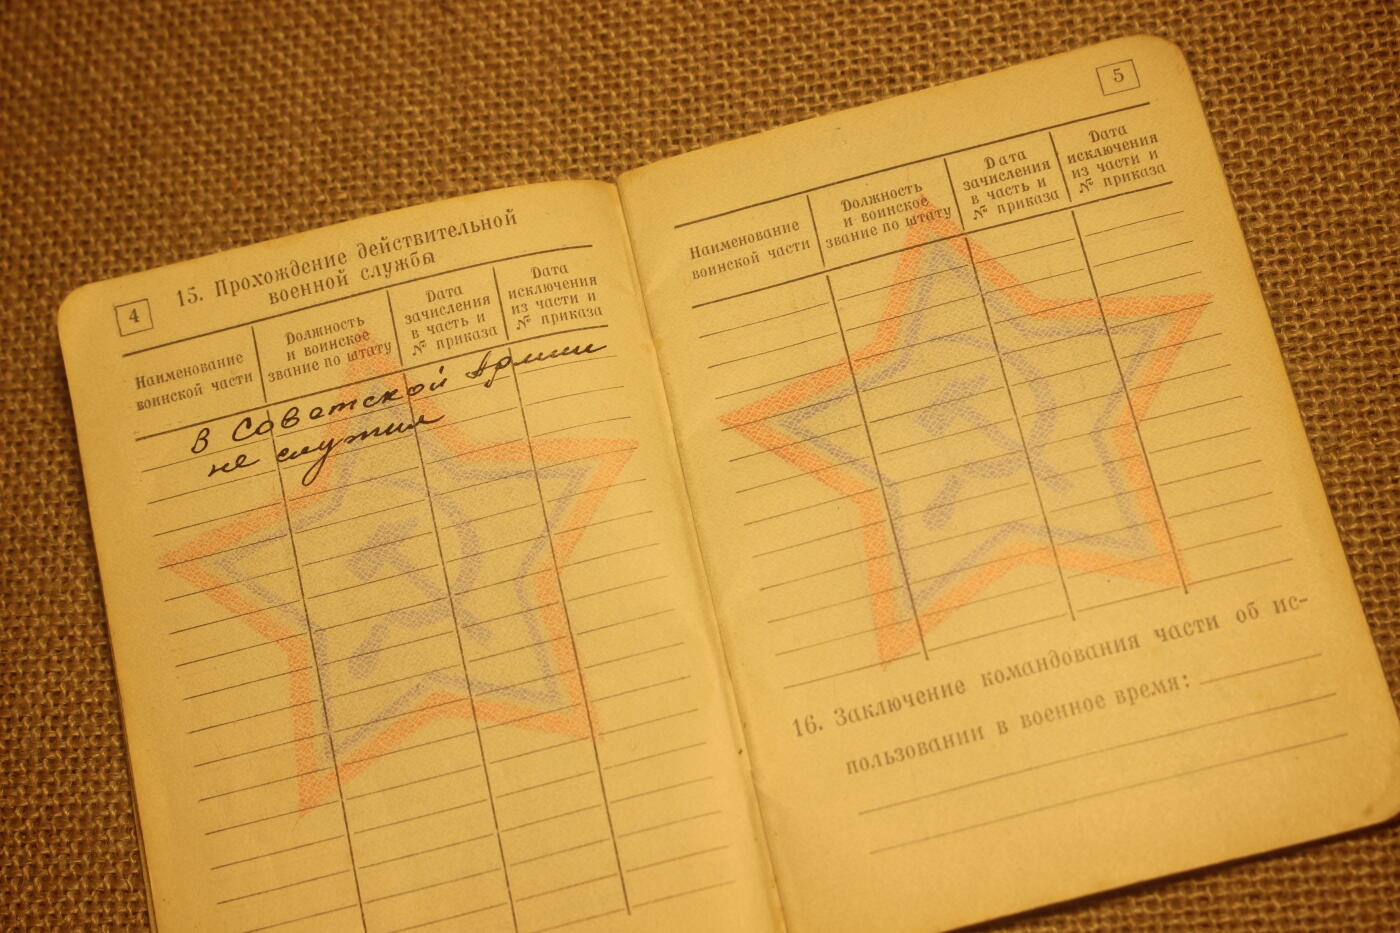 4
15. Прохождение действительной
военной службы
Наименование
воинской части
Должность
и воинское
звание по штату
Дата
зачисления
в часть и
№ приказа
Дата
исключения
из части и
№ приказа
В Советской Армии
не служил
5
Наименование
воинской части
Должность
и воинское
звание по штату
Дата
зачисления
в часть и
№ приказа
Дата
исключения
из части и
№ приказа
16. Заключение командования части об ис-
пользовании в военное время: